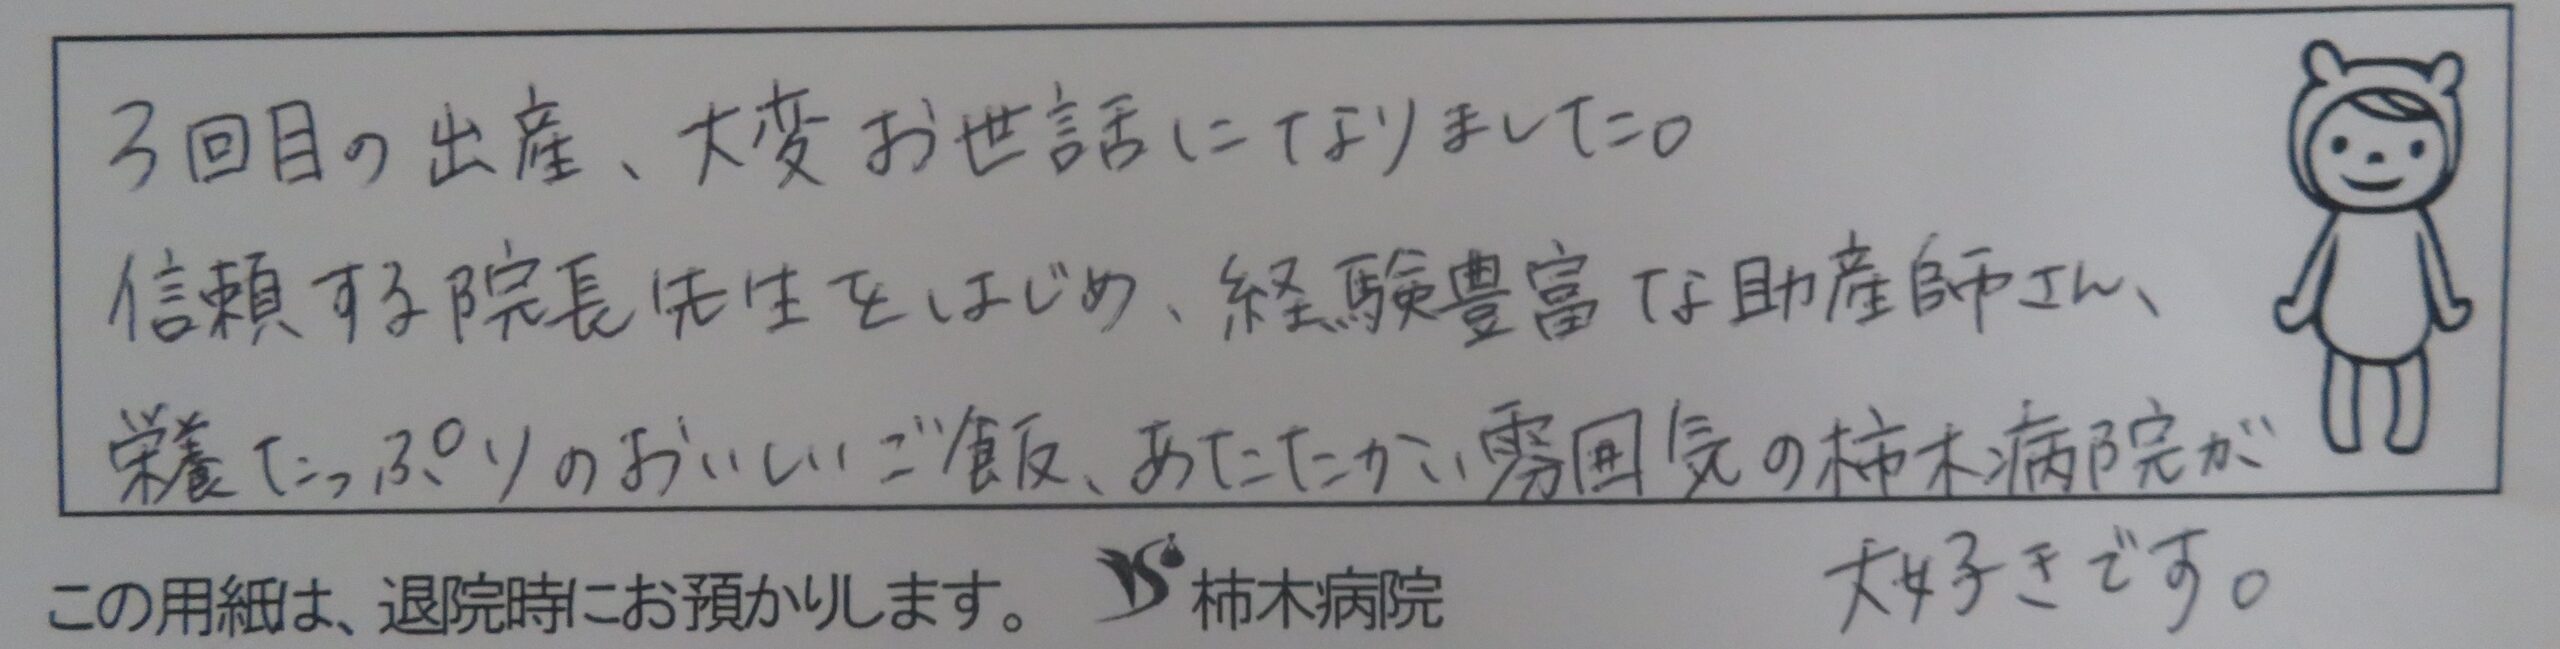 3回目の出産、大変お世話になりました。
信頼する院長先生をはじめ、経験豊富な助産師さん、
栄養たっぷりのおいしいご飯、あたたかい雰囲気の柿木病院が
大好きです。
この用紙は、退院時にお預かりします。 柿木病院